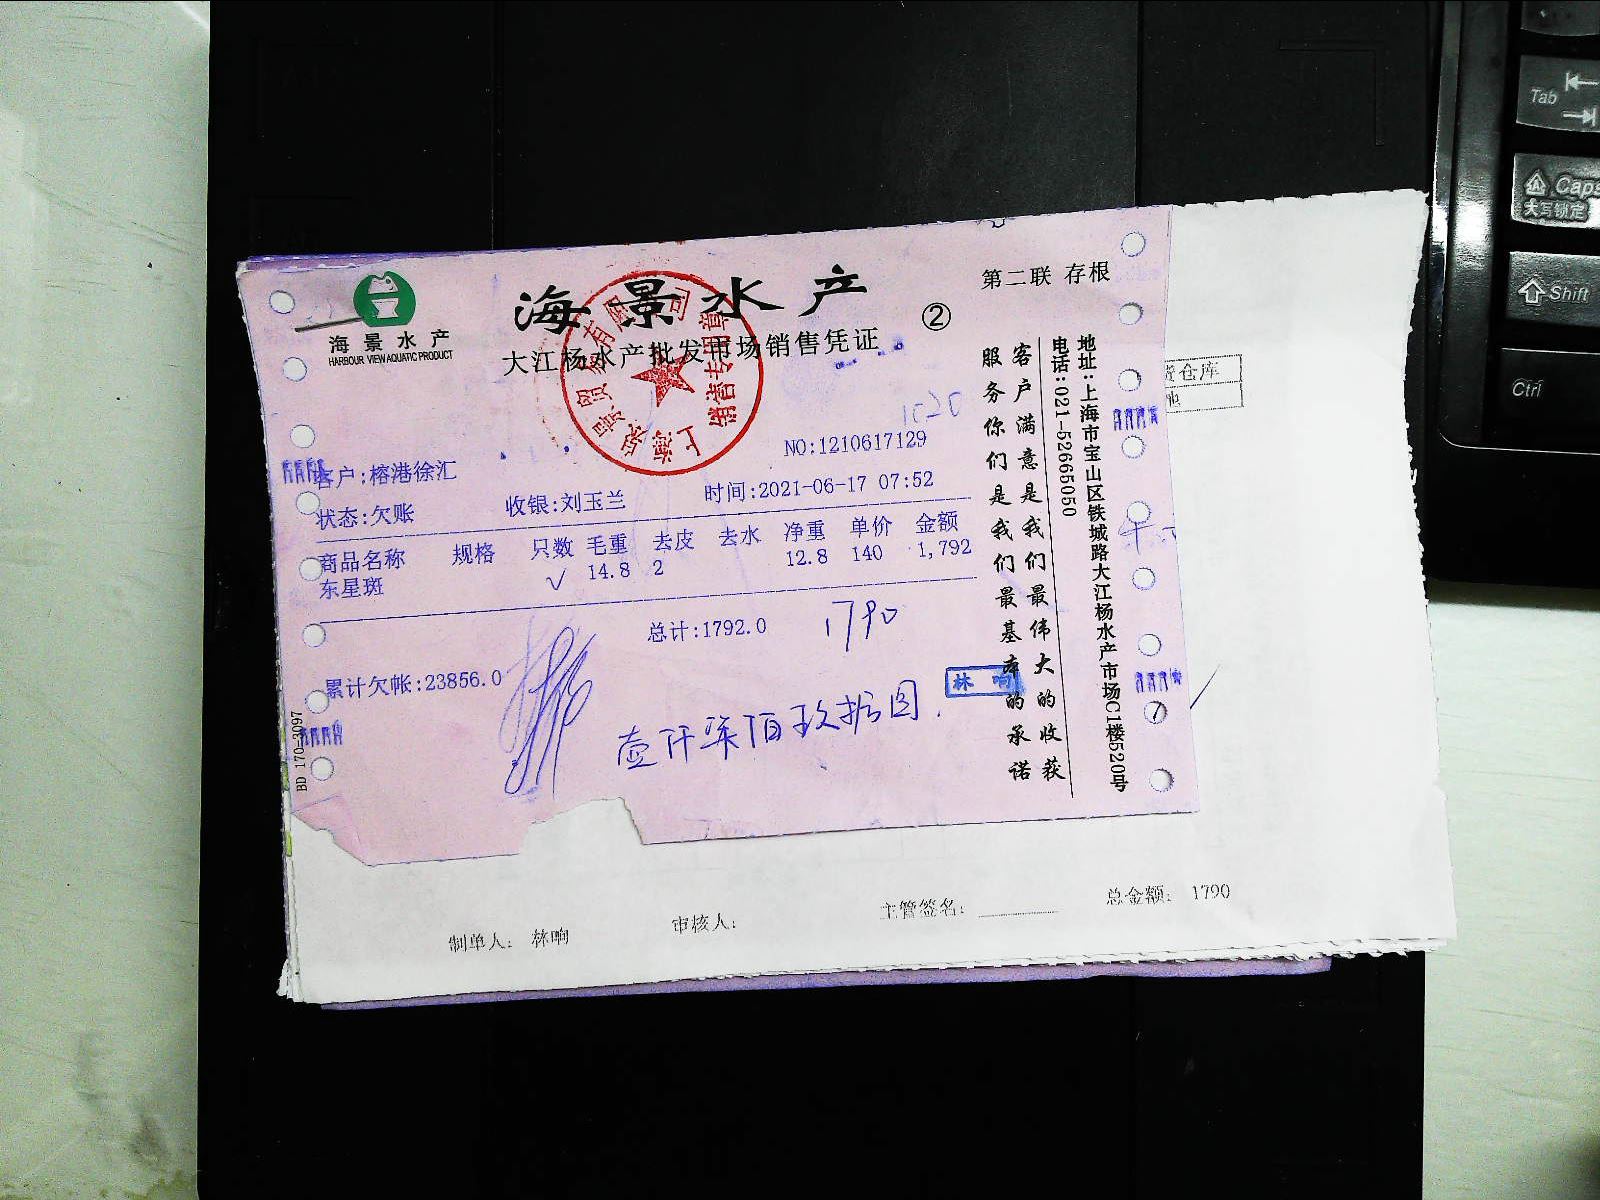 第二联 存根
海景水产
②
海景水产
HARBOUR VIEW AQUATIC PRODUCT
大江杨水产批发市场销售凭证
销售专用章
NO:1210617129
客户:榕港徐汇
状态:欠账
收银:刘玉兰
时间:2021-06-17 07:52
商品名称 规格 只数 毛重 去皮 去水 净重 单价 金额
东星斑 √ 14.8 2 12.8 140 1,792
总计:1792.0
1790
累计欠帐:23856.0
壹仟柒佰玖拾圆
林响
BD 170-3097
地址:上海市宝山区铁城路大江杨水产市场C1楼520号
电话:021-52665050
客户满意是我们最伟大的收获
服务你们是我们最基本的承诺
仓库
制单人: 林响
审核人:
主管签名:
总金额: 1790
Tab
Caps
大写锁定
Shift
Ctrl